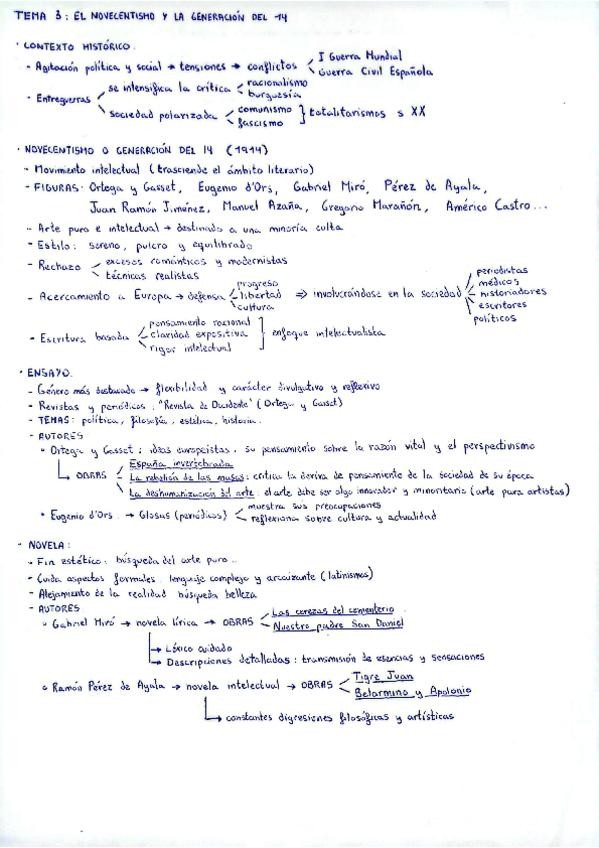 TEMA 3: EL NOVECENTISMO Y LA GENERACIÓN DEL 14
· CONTEXTO HISTÓRICO.
- Agitación política y social → tensiones → conflictos
I Guerra Mundial
Guerra Civil Española
- Entreguerras
se intensifica la crítica
racionalismo
burguesía
sociedad polarizada
comunismo
fascismo
totalitarismos s XX
· NOVECENTISMO O GENERACIÓN DEL 14 (1914)
- Movimiento intelectual (trasciende el ámbito literario)
- FIGURAS: Ortega y Gasset, Eugenio d'Ors, Gabriel Miró, Pérez de Ayala,
Juan Ramón Jiménez, Manuel Azaña, Gregorio Marañón, Américo Castro...
- Arte puro e intelectual → destinado a una minoría culta
- Estilo: sereno, pulcro y equilibrado
- Rechazo
excesos románticos y modernistas
técnicas realistas
- Acercamiento a Europa → defensa
progreso
libertad
cultura
⇒ involucrándose en la sociedad
periodistas
médicos
historiadores
escritores
políticos
- Escritura basada
pensamiento racional
claridad expositiva
rigor intelectual
enfoque intelectualista
· ENSAYO.
- Género más destacado → flexibilidad y carácter divulgativo y reflexivo
- Revistas y periódicos: "Revista de Occidente" (Ortega y Gasset)
- TEMAS: política, filosofía, estética, historia.
- AUTORES
· Ortega y Gasset: ideas europeistas. su pensamiento sobre la razón vital y el perspectivismo
→ OBRAS
España invertebrada
La rebelión de las masas: critica la deriva de pensamiento de la sociedad de su época
La deshumanización del arte: el arte debe ser algo innovador y minoritario (arte para artistas)
· Eugenio d'Ors. → Glosas (periódicos)
muestra sus preocupaciones
reflexiona sobre cultura y actualidad
- NOVELA:
- Fin estético: búsqueda del arte puro..
- Cuida aspectos formales. lenguaje complejo y arcaizante (latinismos)
- Alejamiento de la realidad búsqueda belleza
- AUTORES
· Gabriel Miró → novela lírica → OBRAS
Las cerezas del cementerio
Nuestro padre San Daniel
→ Léxico cuidado
→ Descripciones detalladas: transmisión de esencias y sensaciones
· Ramón Pérez de Ayala → novela intelectual → OBRAS
Tigre Juan
Belarmino y Apolonio
→ constantes digresiones filosóficas y artísticas